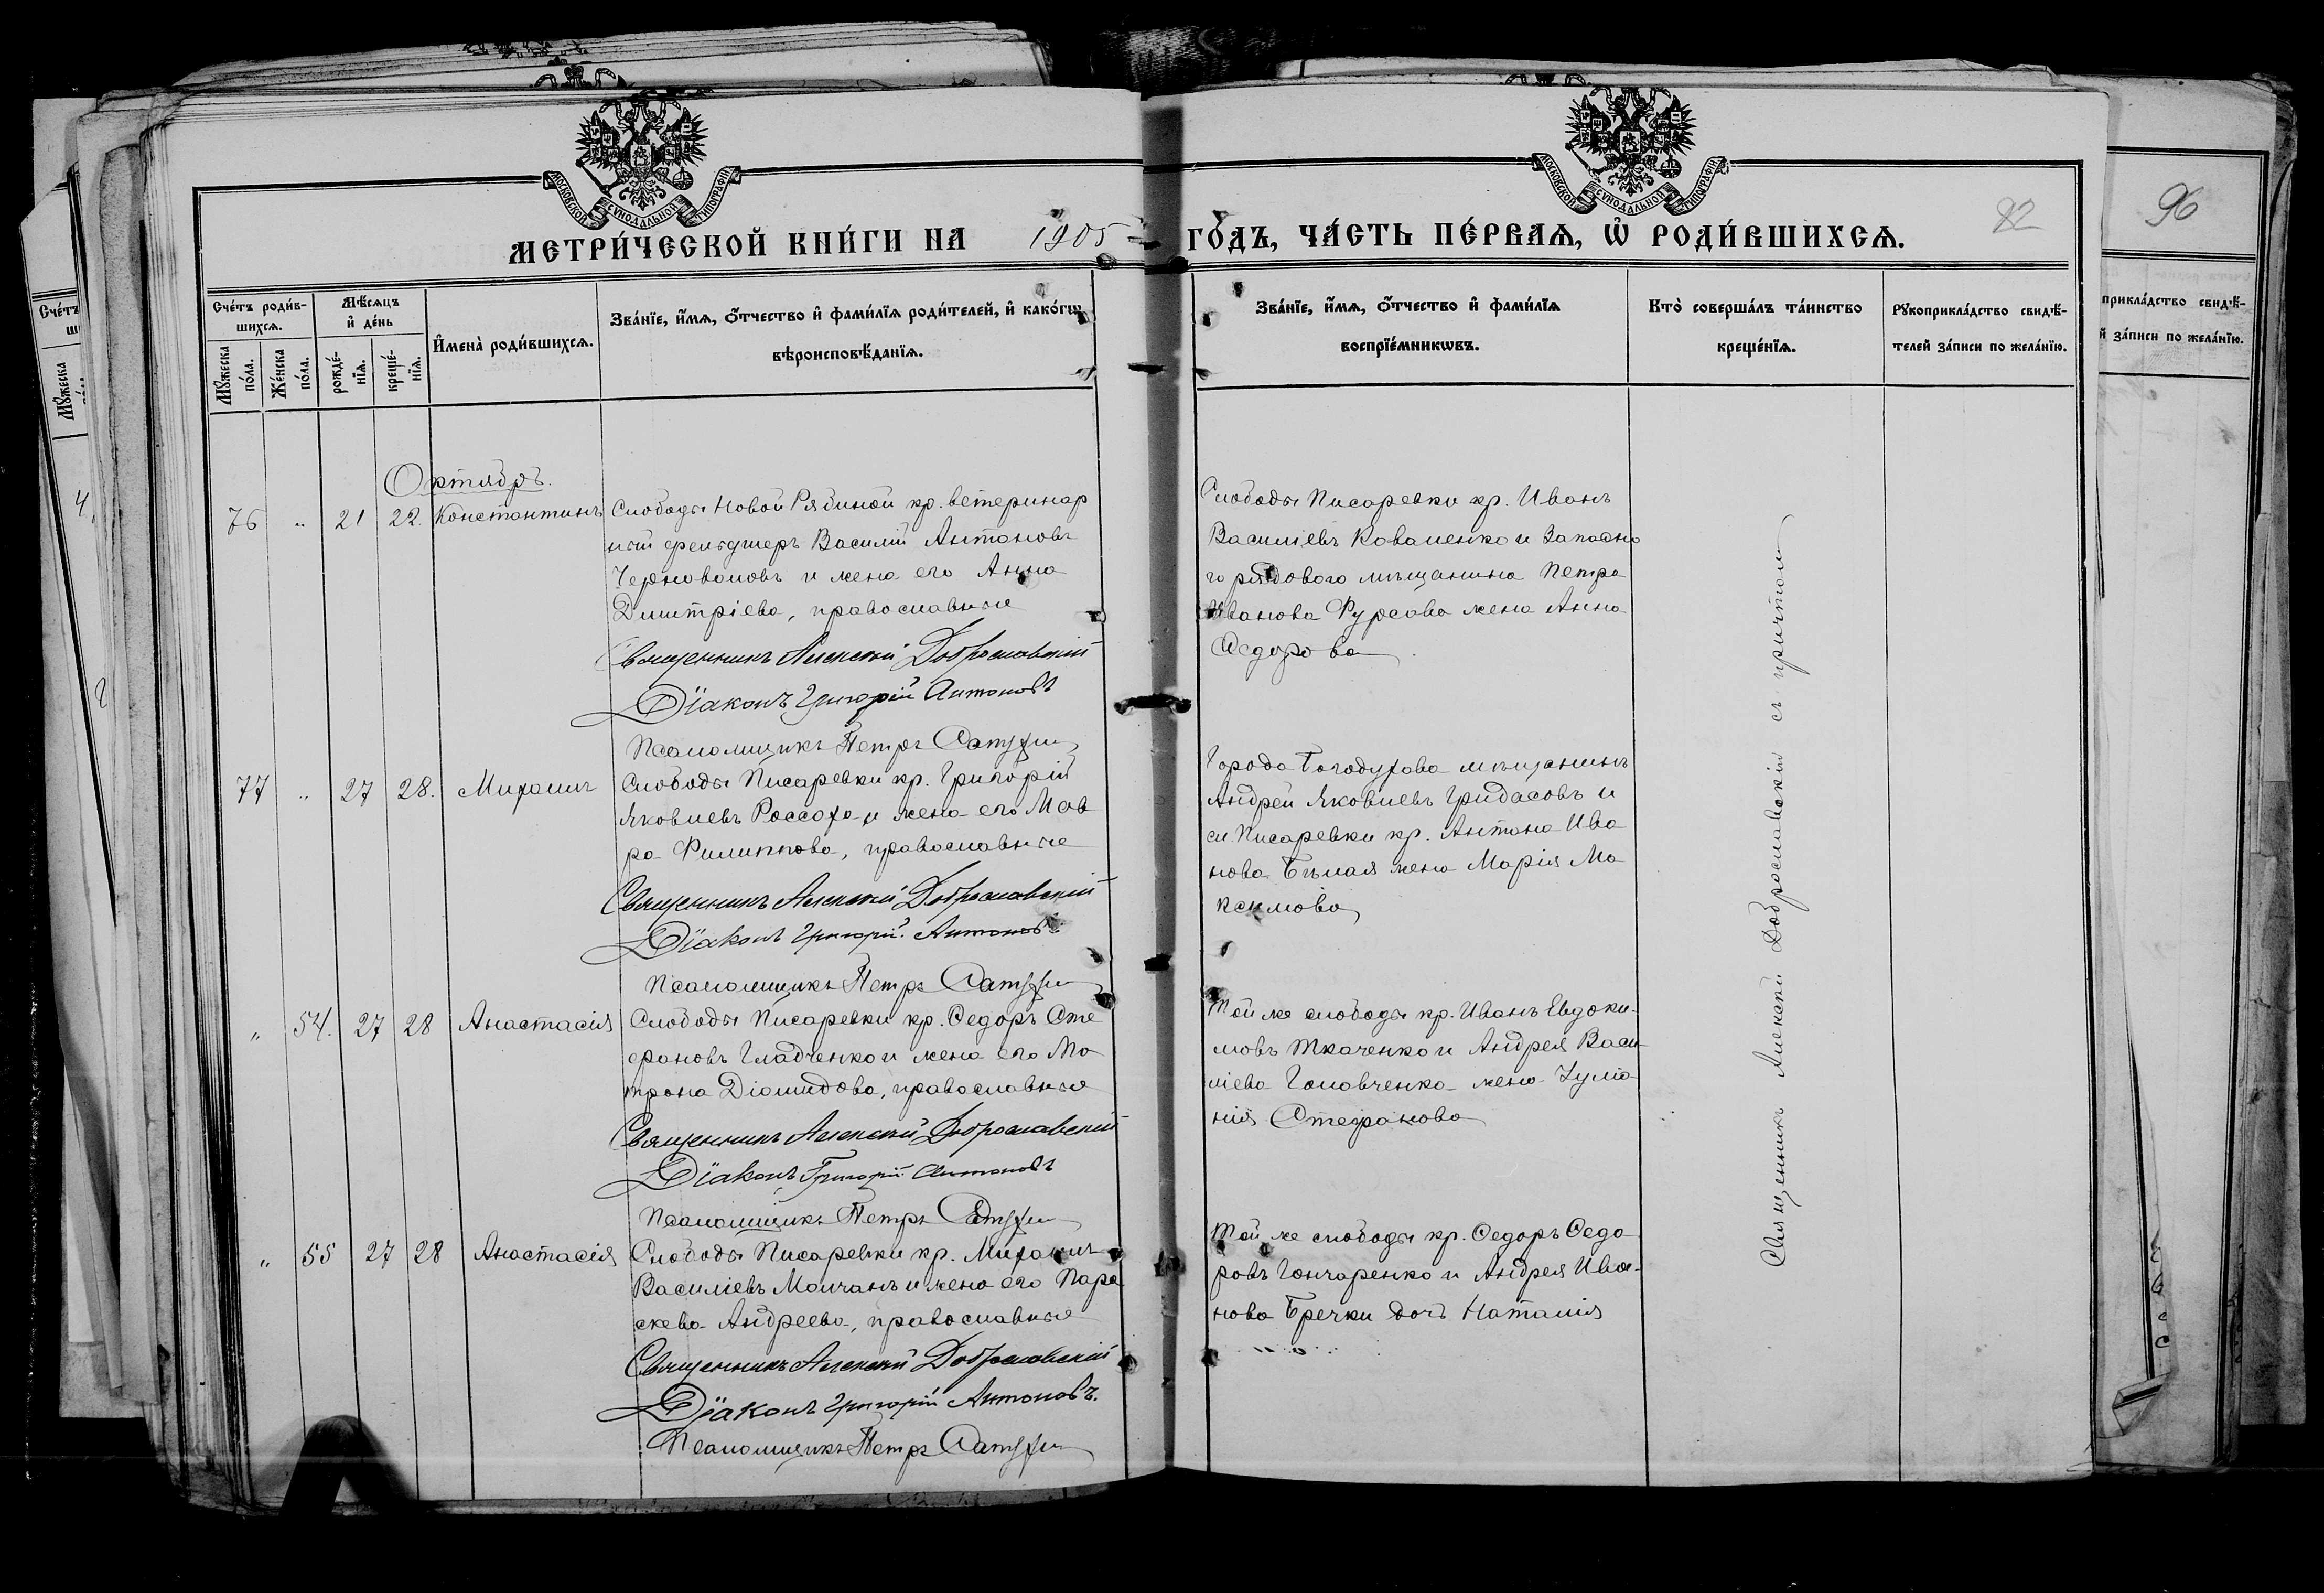 МОСКОВСКОЙ СѴНОДАЛЬНОЙ ТИПОГРАФІИ
МОСКОВСКОЙ СѴНОДАЛЬНОЙ ТИПОГРАФІИ
МЕТРИ́ЧЕСКОЙ КНИ́ГИ НА 1905 ГО́ДЪ, ЧА́СТЬ ПЕ́РВАѦ, Ѡ҆ РОДИ́ВШИХСѦ.
82
96
Сче́тъ роди́в-
шихсѧ.
Мѣ́сѧцъ
и҆ де́нь
Мꙋ́жеска
по́ла.
Же́нска
по́ла.
рожде́-
нїѧ.
креще́-
нїѧ.
И҆мена̀ роди́вшихсѧ.
Зва́нїе, и҆́мѧ, ѻ҆́тчество и҆ фами́лїѧ роди́телей, и҆ како́гѡ
вѣроисповѣ́данїѧ.
Зва́нїе, и҆́мѧ, ѻ҆́тчество и҆ фами́лїѧ
воспрїе́мникѡвъ.
Кто̀ соверша́лъ та́инство
креще́нїѧ.
Рꙋкоприкла́дство свидѣ́-
телей за́писи по жела́нїю.
прикла́дство свидѣ́-
й за́писи по жела́нїю.
Сче́тъ
Мꙋ́жеска
4,
Октябрь.
76 " 21 22. Константинъ
Слободы Новой Рябиной кр. ветеринар
ный фельдшеръ Василій Антоновъ
Черноволовъ и жена его Анна
Димитріева, православные
Священникъ Алексій Доброславскій
Діаконъ Григорій Антоновъ
Псаломщикъ Петръ
Слободы Писаревки кр. Иванъ
Василіевъ Коваленко и Запасна
го рядового мѣщанина Петра
Иванова Фурсова жена Анна
Ѳедорова
77 " 27 28. Михаилъ
Слободы Писаревки кр. Григорій
Яковлевъ Россоха и жена его Мав
ра Филиппова, православные
Священникъ Алексій Доброславскій
Діаконъ Григорій Антоновъ
Псаломщикъ Петръ
Города Богодухова мѣщанинъ
Андрей Яковлевъ Гридасовъ и
сл. Писаревки кр. Антона Ива
нова Бѣлая жена Марія Ма
ксимова
" 54. 27 28 Анастасія
Слободы Писаревки кр. Ѳедоръ Сте
фановъ Гладченко и жена его Ма
трона Діомидова, православные
Священникъ Алексій Доброславскій
Діаконъ Григорій Антоновъ
Псаломщикъ Петръ
Той же слободы кр. Иванъ Евдоки-
мовъ Ткаченко и Андрея Васи
ліева Головченка жена Іуліа
нія Стефанова
" 55 27 28 Анастасія
Слободы Писаревки кр. Михаилъ
Василіевъ Молчанъ и жена его Пара
скева Андреева, православные
Священникъ Алексій Доброславскій
Діаконъ Григорій Антоновъ.
Псаломщикъ Петръ
Той же слободы кр. Ѳедоръ Ѳедо
ровъ Гончаренко и Андрея Ива-
нова Бречки дочь Наталія
Священникъ Алексій Доброславскій съ причтомъ